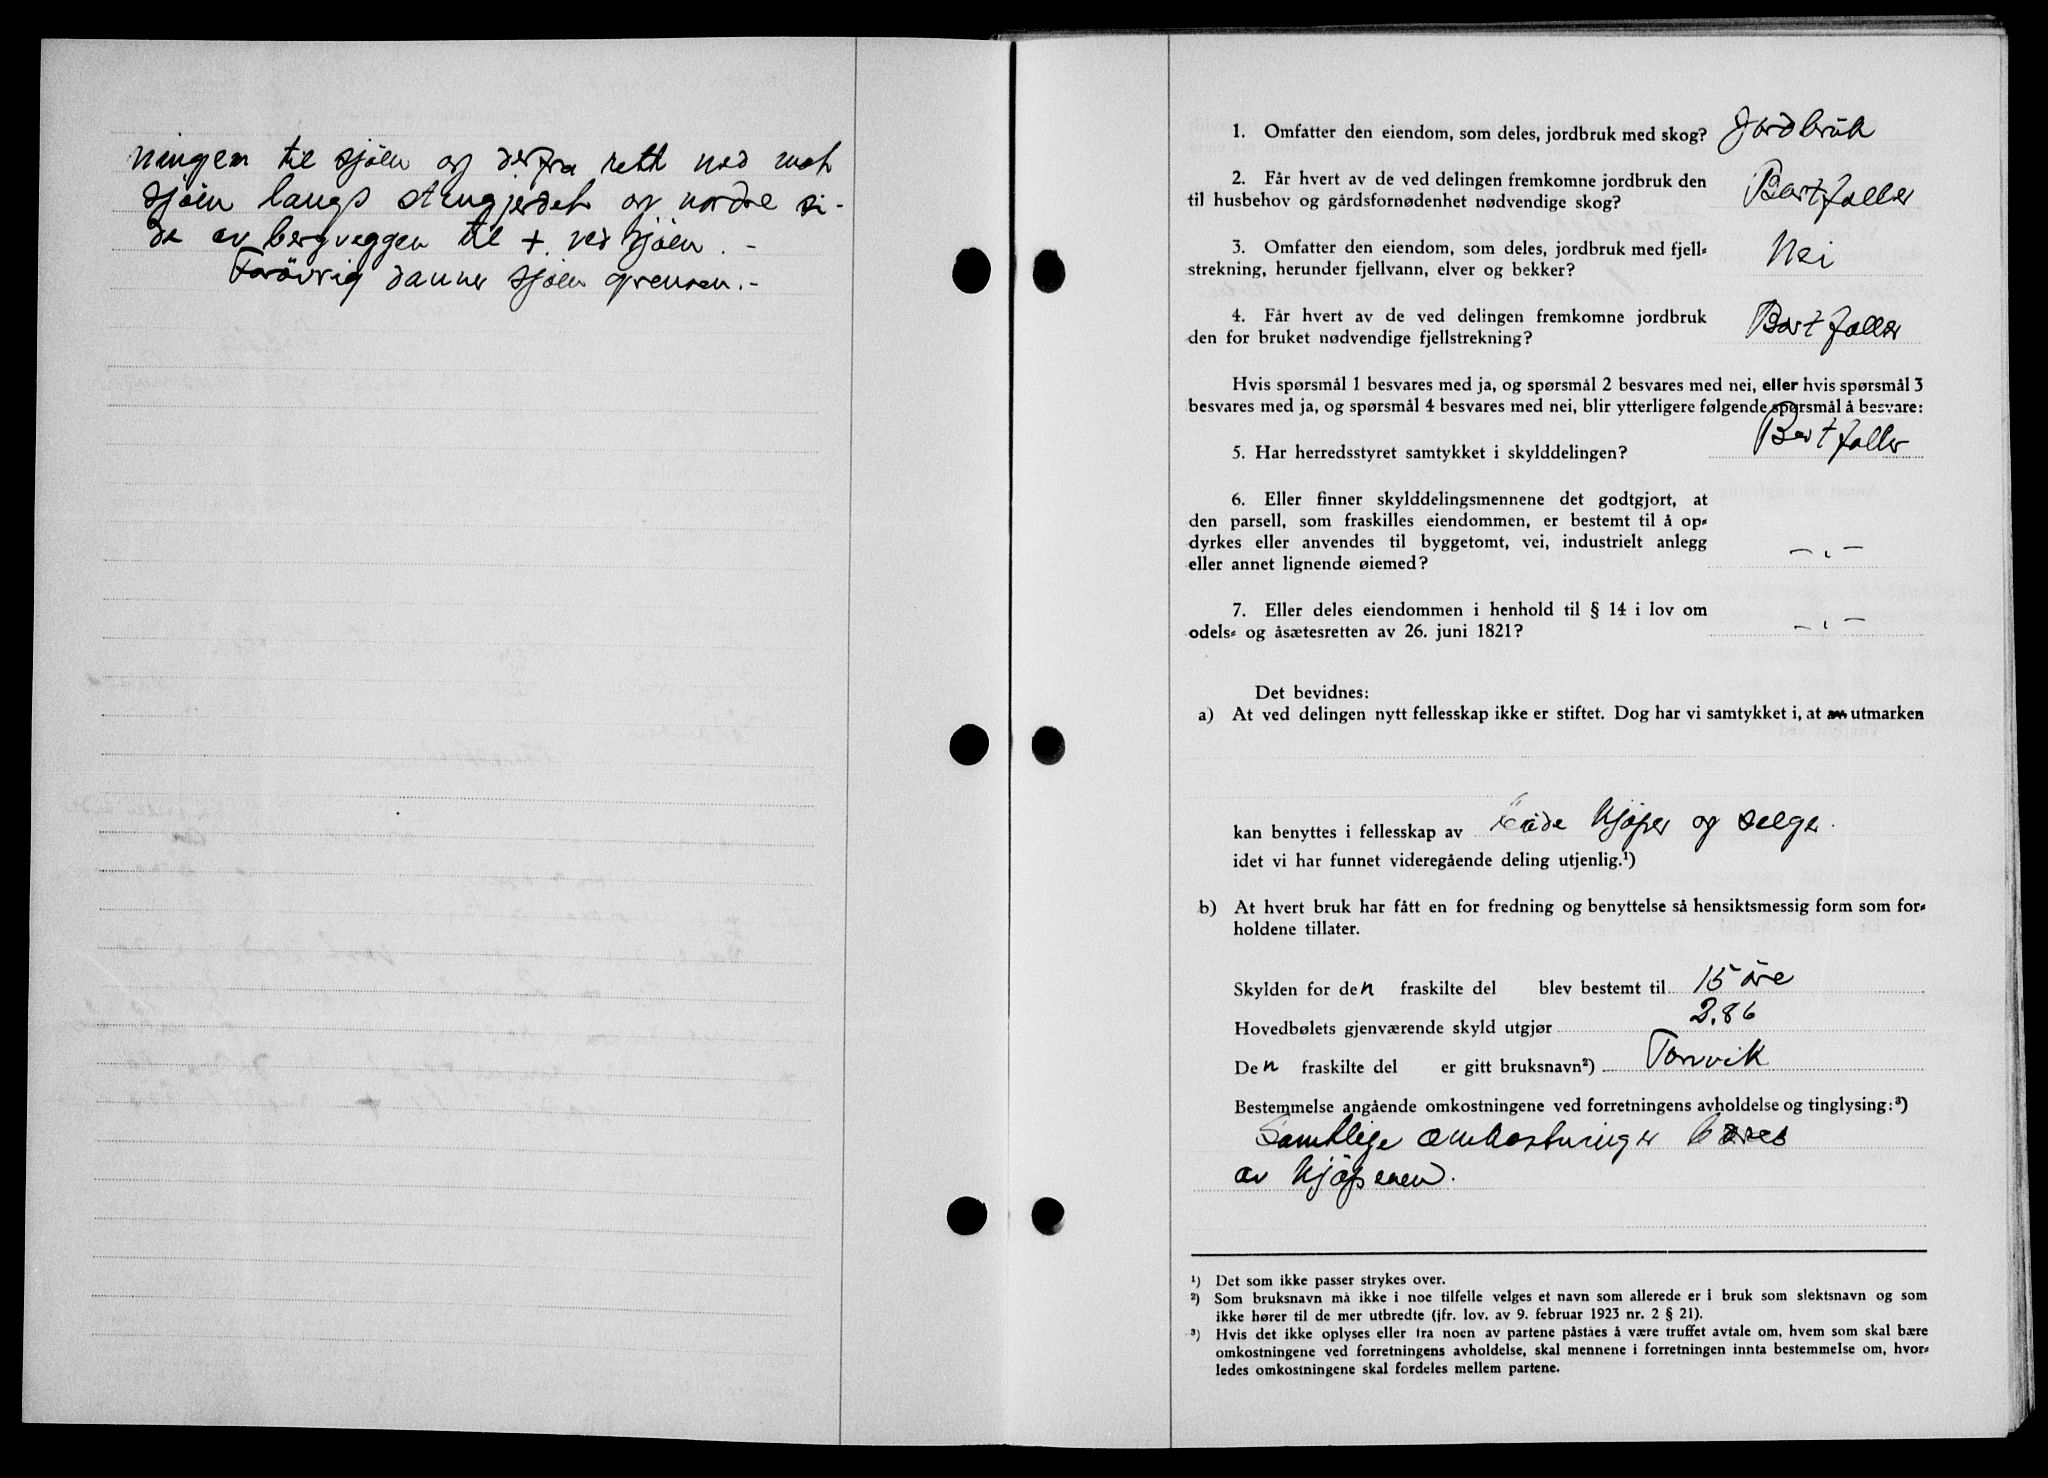 ningen til sjöen og derfra rett ned mot
sjöen langs stengjerdet og nordre si-
de av bergveggen til + ved sjöen. -
Forövrig danner sjöen grensen. -
1. Omfatter den eiendom, som deles, jordbruk med skog? Jordbruk
2. Får hvert av de ved delingen fremkomne jordbruk den
til husbehov og gårdsfornødenhet nødvendige skog? Bortfaller
3. Omfatter den eiendom, som deles, jordbruk med fjell-
strekning, herunder fjellvann, elver og bekker? Nei
4. Får hvert av de ved delingen fremkomne jordbruk
den for bruket nødvendige fjellstrekning? Bortfaller
Hvis spørsmål 1 besvares med ja, og spørsmål 2 besvares med nei, eller hvis spørsmål 3
besvares med ja, og spørsmål 4 besvares med nei, blir ytterligere følgende spørsmål å besvare:
5. Har herredsstyret samtykket i skylddelingen? Bortfaller
6. Eller finner skylddelingsmennene det godtgjort, at
den parsell, som fraskilles eiendommen, er bestemt til å op-
dyrkes eller anvendes til byggetomt, vei, industrielt anlegg
eller annet lignende øiemed? - „ -
7. Eller deles eiendommen i henhold til § 14 i lov om
odels- og åsætesretten av 26. juni 1821? - „ -
Det bevidnes:
a) At ved delingen nytt fellesskap ikke er stiftet. Dog har vi samtykket i, at av utmarken
kan benyttes i fellesskap av både kjöper og selger.
idet vi har funnet videregående deling utjenlig.¹)
b) At hvert bruk har fått en for fredning og benyttelse så hensiktsmessig form som for-
holdene tillater.
Skylden for den fraskilte del blev bestemt til 15 öre
Hovedbølets gjenværende skyld utgjør 2.86
Den fraskilte del er gitt bruksnavn²) Torvvik
Bestemmelse angående omkostningene ved forretningens avholdelse og tinglysing:³)
Samtlige omkostninger bæres
av kjöperen.
¹) Det som ikke passer strykes over.
²) Som bruksnavn må ikke i noe tilfelle velges et navn som allerede er i bruk som slektsnavn og som
ikke hører til de mer utbredte (jfr. lov. av 9. februar 1923 nr. 2 § 21).
³) Hvis det ikke oplyses eller fra noen av partene påståes å være truffet avtale om, hvem som skal bære
omkostningene ved forretningens avholdelse, skal mennene i forretningen innta bestemmelse om, hvor-
ledes omkostningene skal fordeles mellem partene.